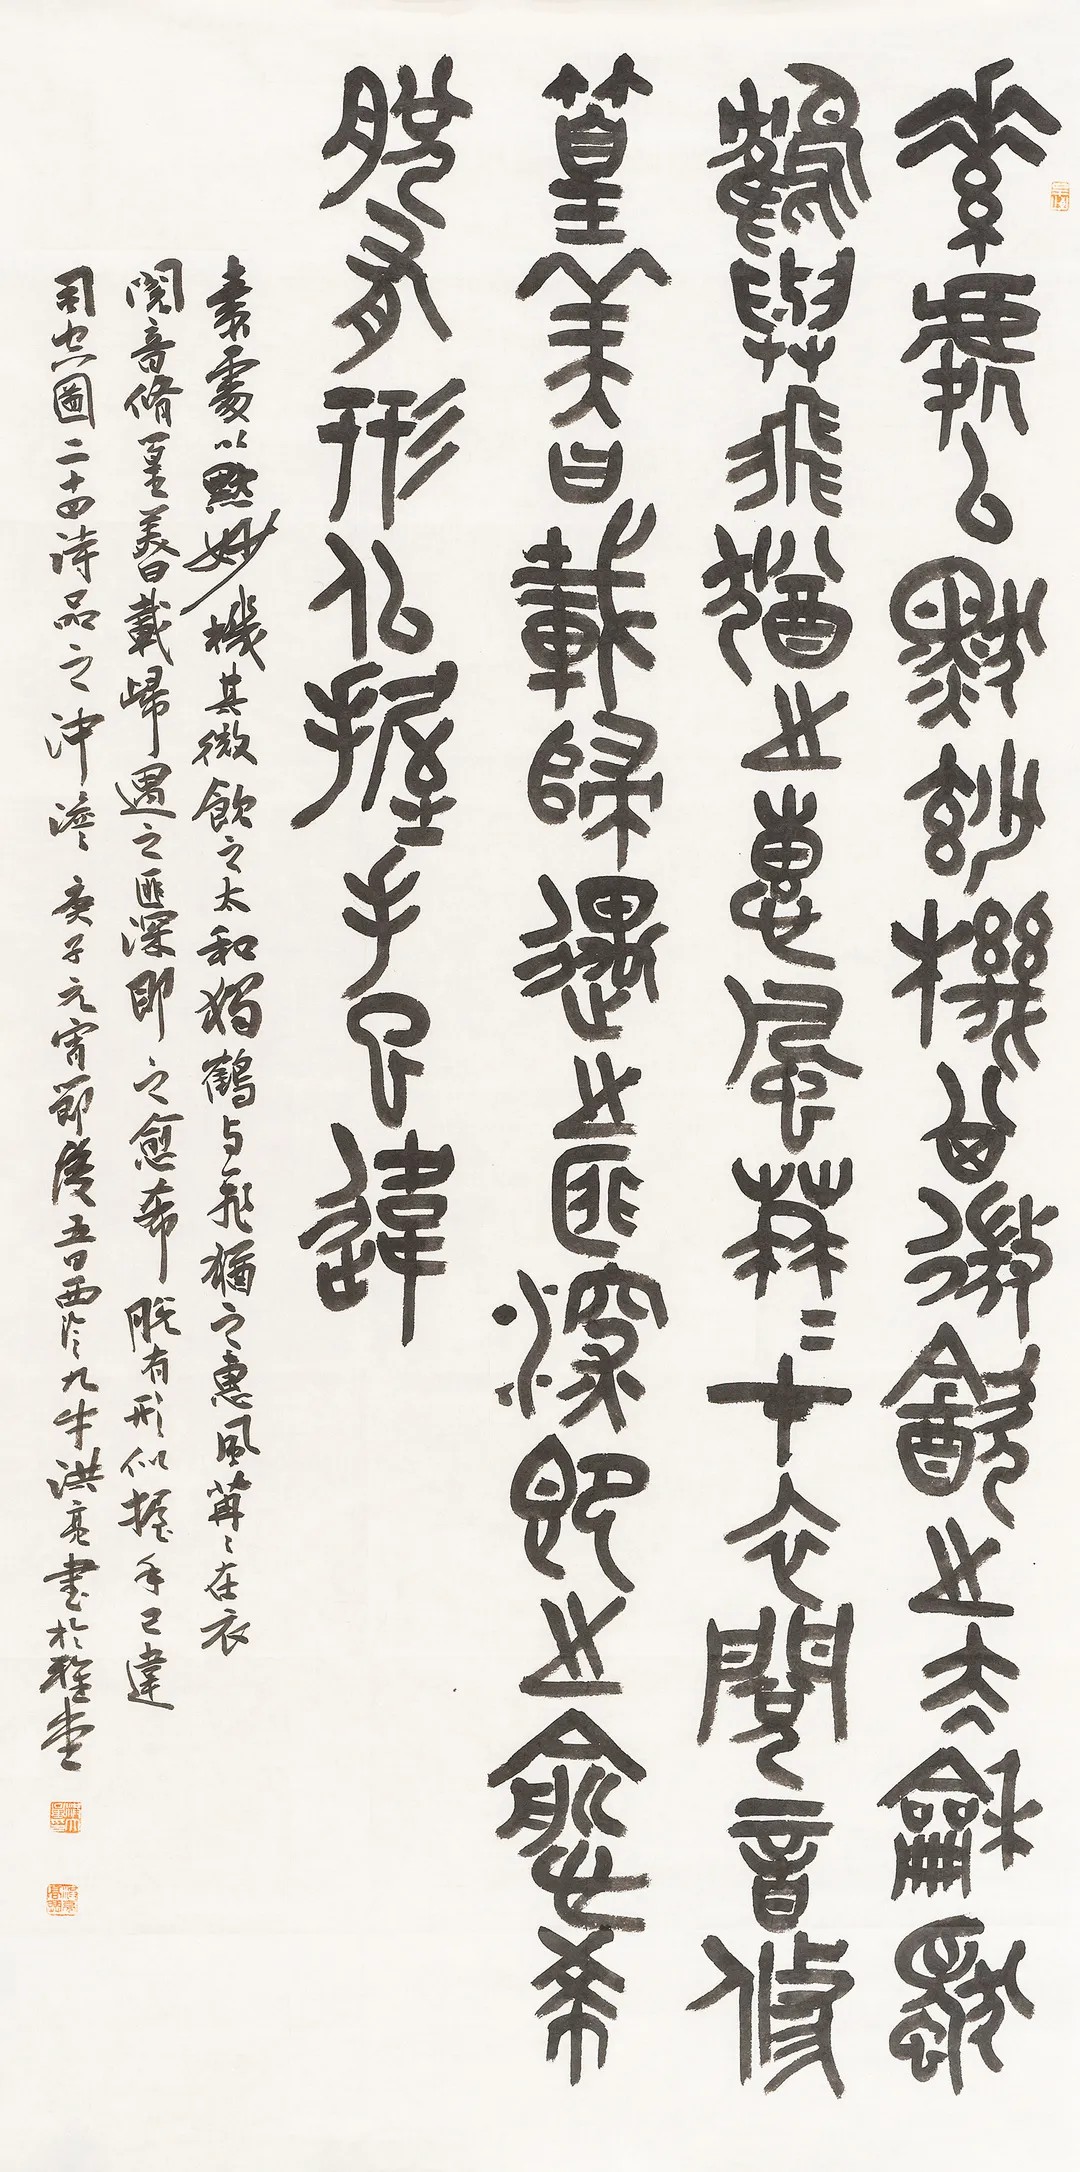 素處以默妙機其微飲之太和獨
鶴與飛猶之惠風荏二在衣閱音修
篁美曰載歸遇之匪深即之愈希
脫有形似握手已違
素處以默妙機其微飲之太和獨鶴与飛猶之惠風苒〻在衣
閱音脩篁美曰載歸遇之匪深即之愈希脫有形似握手已違
司空圖二十四詩品之沖澹庚子元宵節後五日西泠九牛洪亮書於雅堂